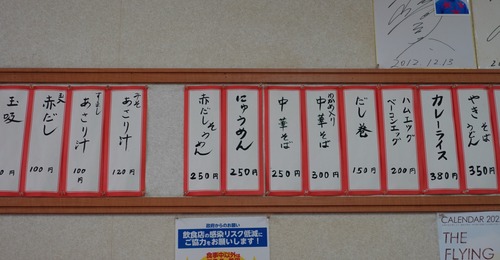 2012.12.15
やき そば うどん 350円
カレーライス 380円
ハムエッグ ベーコンエッグ 200円
だし巻 150円
わかめ入り 中華そば 300円
中華そば 250円
にゅうめん 250円
赤だし そうめん 250円
みそ あさり汁 120円
すまし あさり汁 100円
玉入 赤だし 100円
玉吸
政府からのお願い
飲食店の感染リスク低減に
ご協力をお願いします!
食事中以外は
CALENDAR 202
THE
FLYING